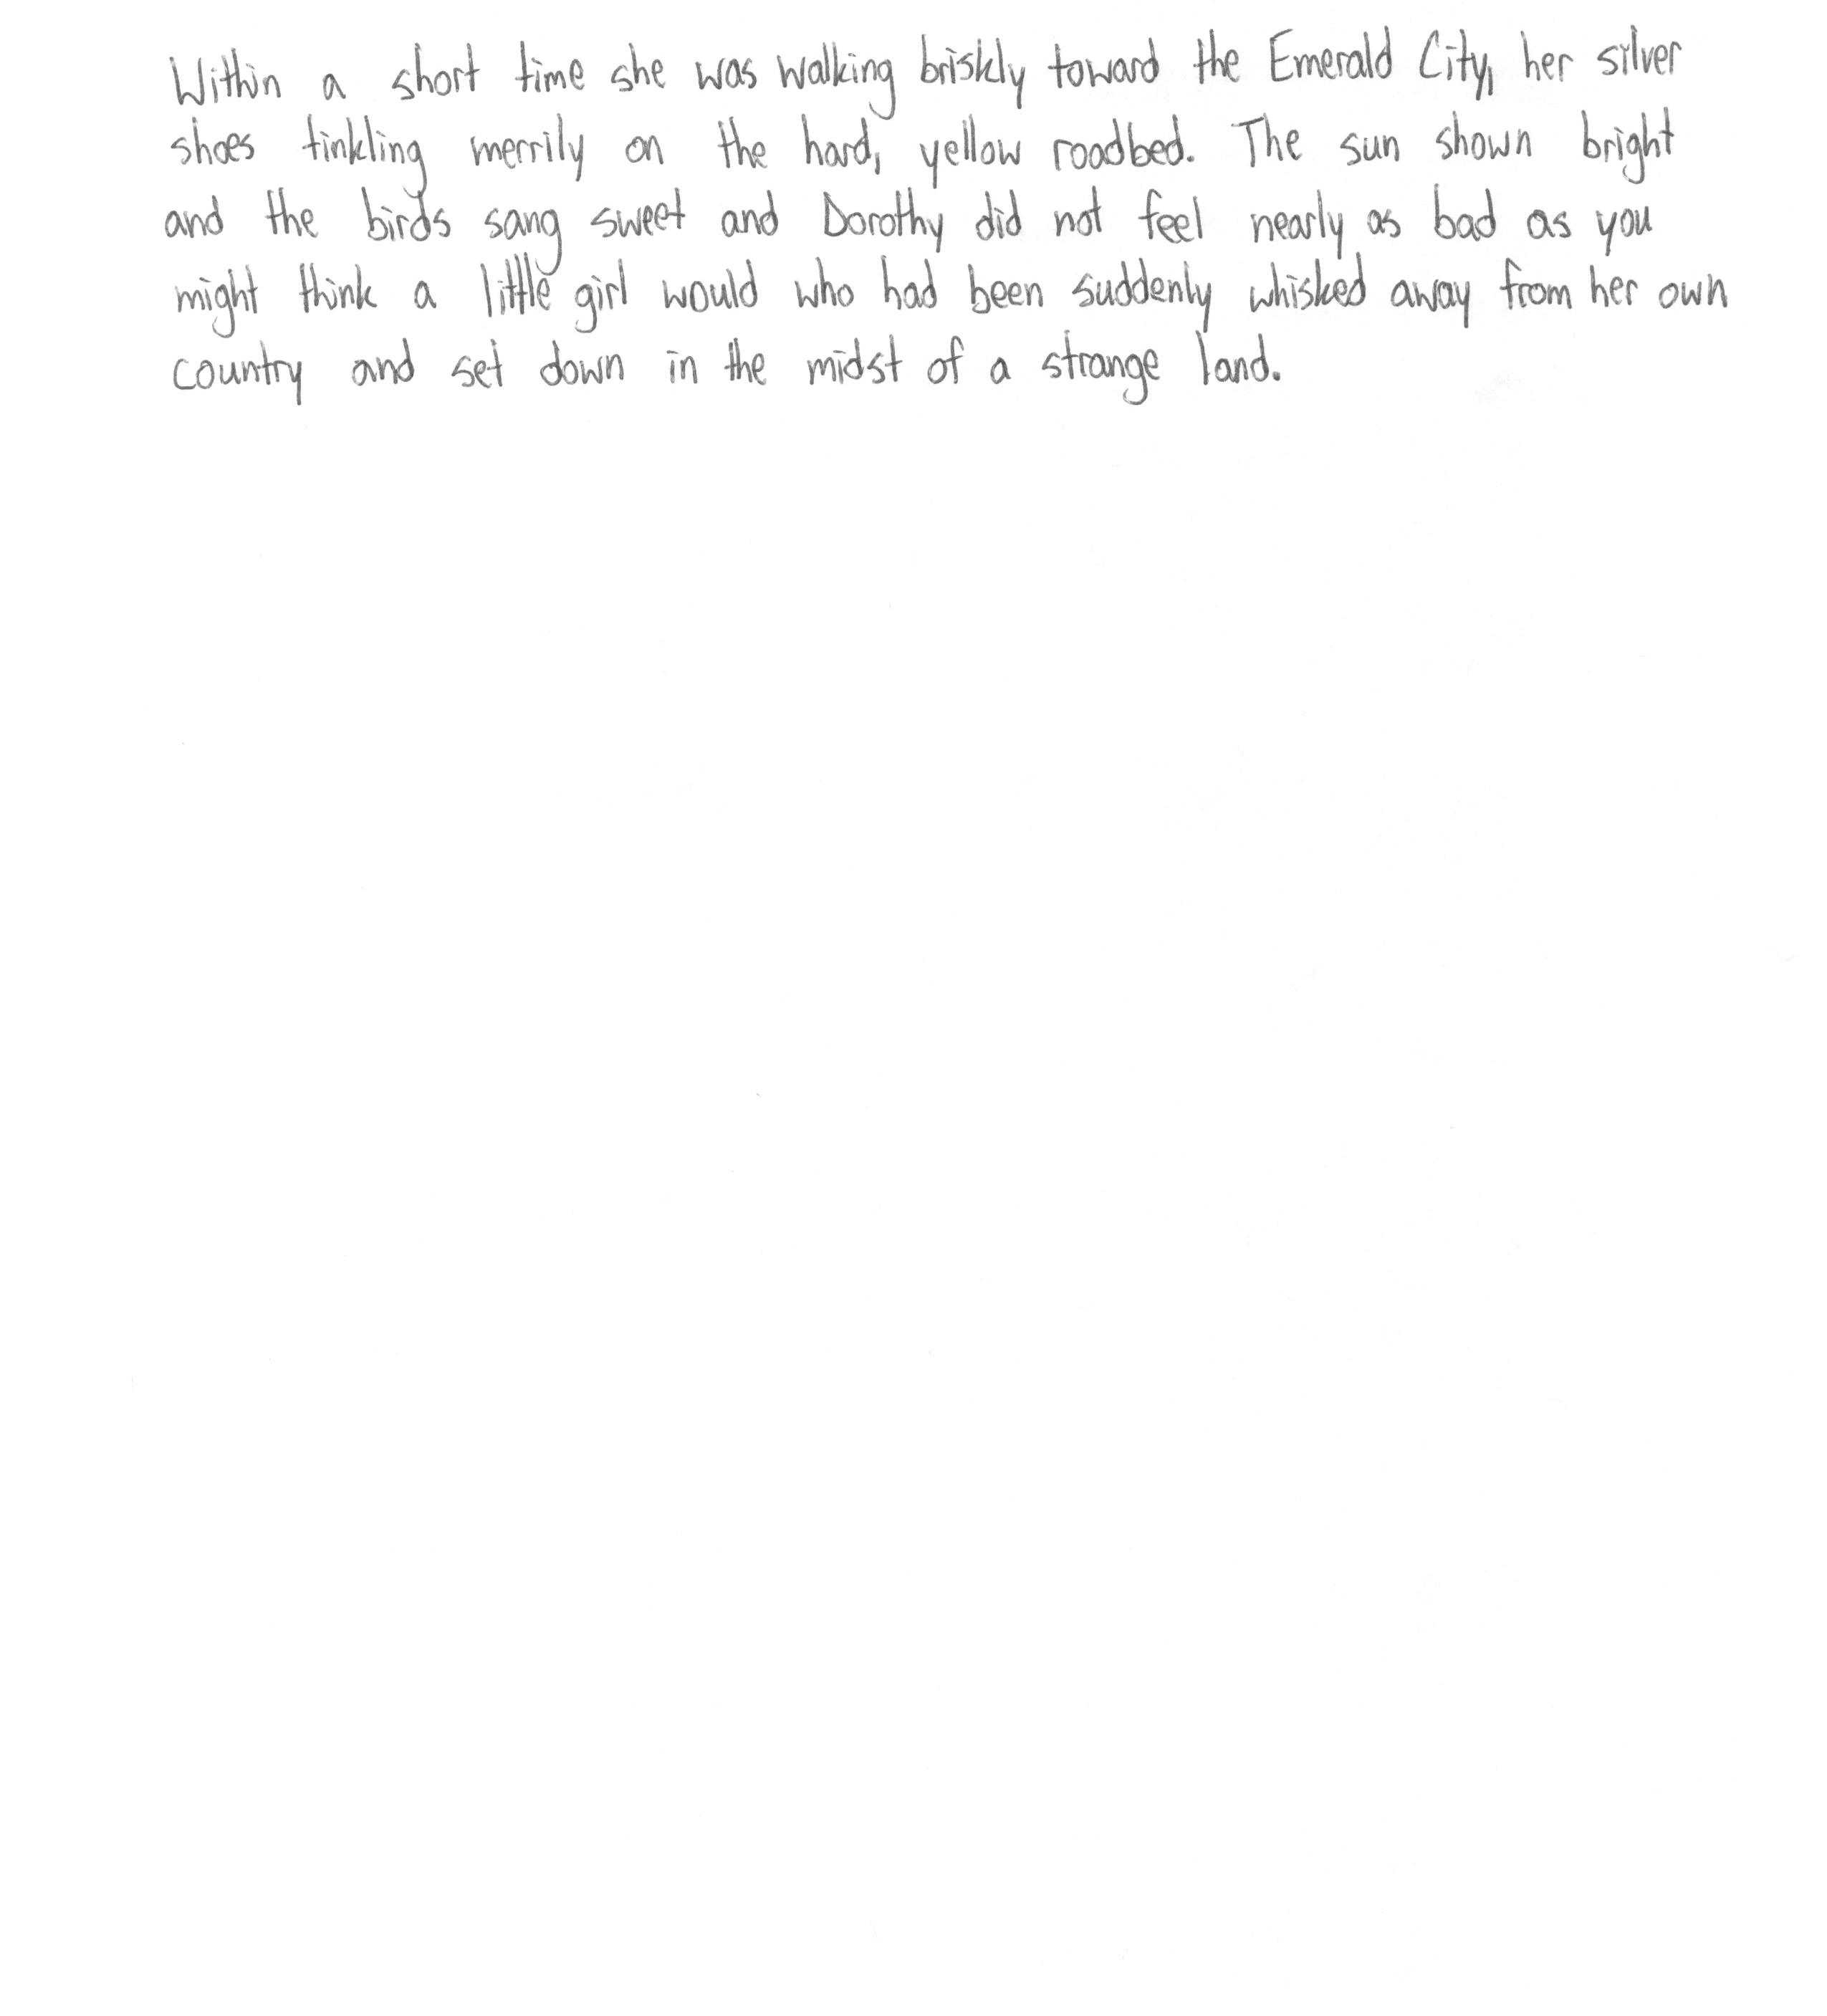 Within a short time she was walking briskly toward the Emerald City, her silver
shoes tinkling merrily on the hard, yellow roadbed. The sun shown bright
and the birds sang sweet and Dorothy did not feel nearly as bad as you
might think a little girl would who had been suddenly whisked away from her own
country and set down in the midst of a strange land.